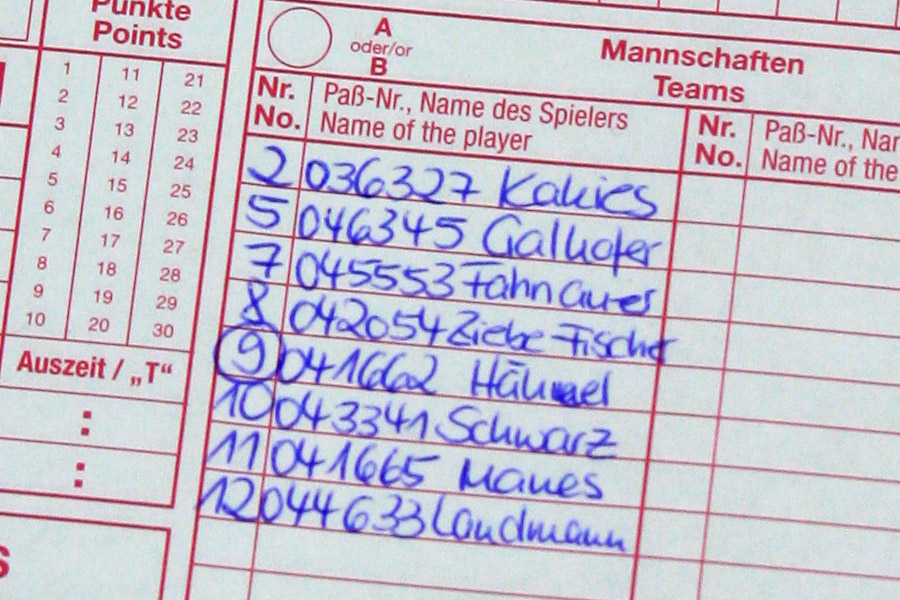 Punkte
Points
1 11 21
2 12 22
3 13 23
4 14 24
5 15 25
6 16 26
7 17 27
8 18 28
9 19 29
10 20 30
Auszeit / „T“
:
:
A
oder/or
B
Mannschaften
Teams
Nr.
No.
Paß-Nr., Name des Spielers
Name of the player
Nr.
No.
Paß-Nr., Nam
Name of the
2 036327 Kakies
5 046345 Galhofer
7 045553 Fahnauer
8 042054 Ziebe-Fischer
9 041662
10 043341 Schwarz
11 041665 Manes
12 044633 Landmann